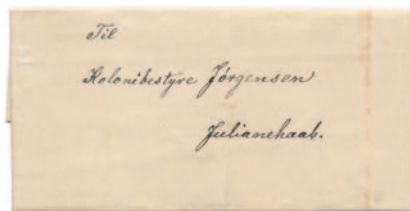 Til
Kolonibestyre Jørgensen
Julianehaab.